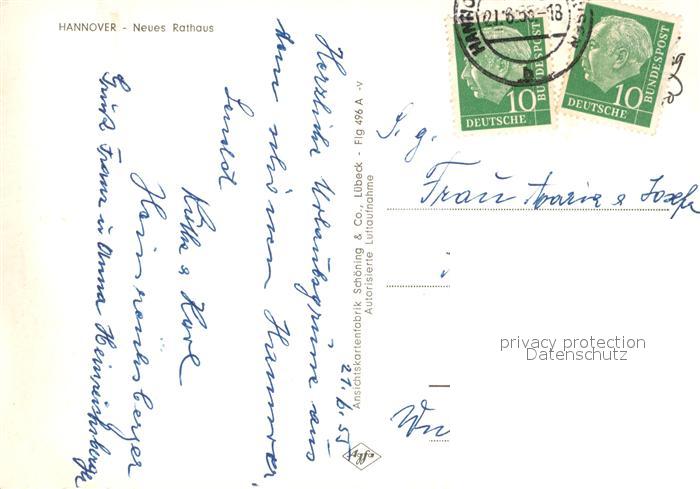 HANNOVER - Neues Rathaus
HANNO
21.6.55-18
10
DEUTSCHE
BUNDESPOST
10
DEUTSCHE
BUNDESPOST
21.6.55
Herzliche Urlaubsgrüße aus
dem schönen Hannover,
sendet
Käthe u Karl
Heinrichsberger
Gruß Franz u Anna Heinrichsberger
Ansichtskartenfabrik Schöning & Co., Lübeck - Flg 496 A -v
Autorisierte Luftaufnahme
Agfa
S. g.
Frau Maria u Josefa
Wu
privacy protection
Datenschutz